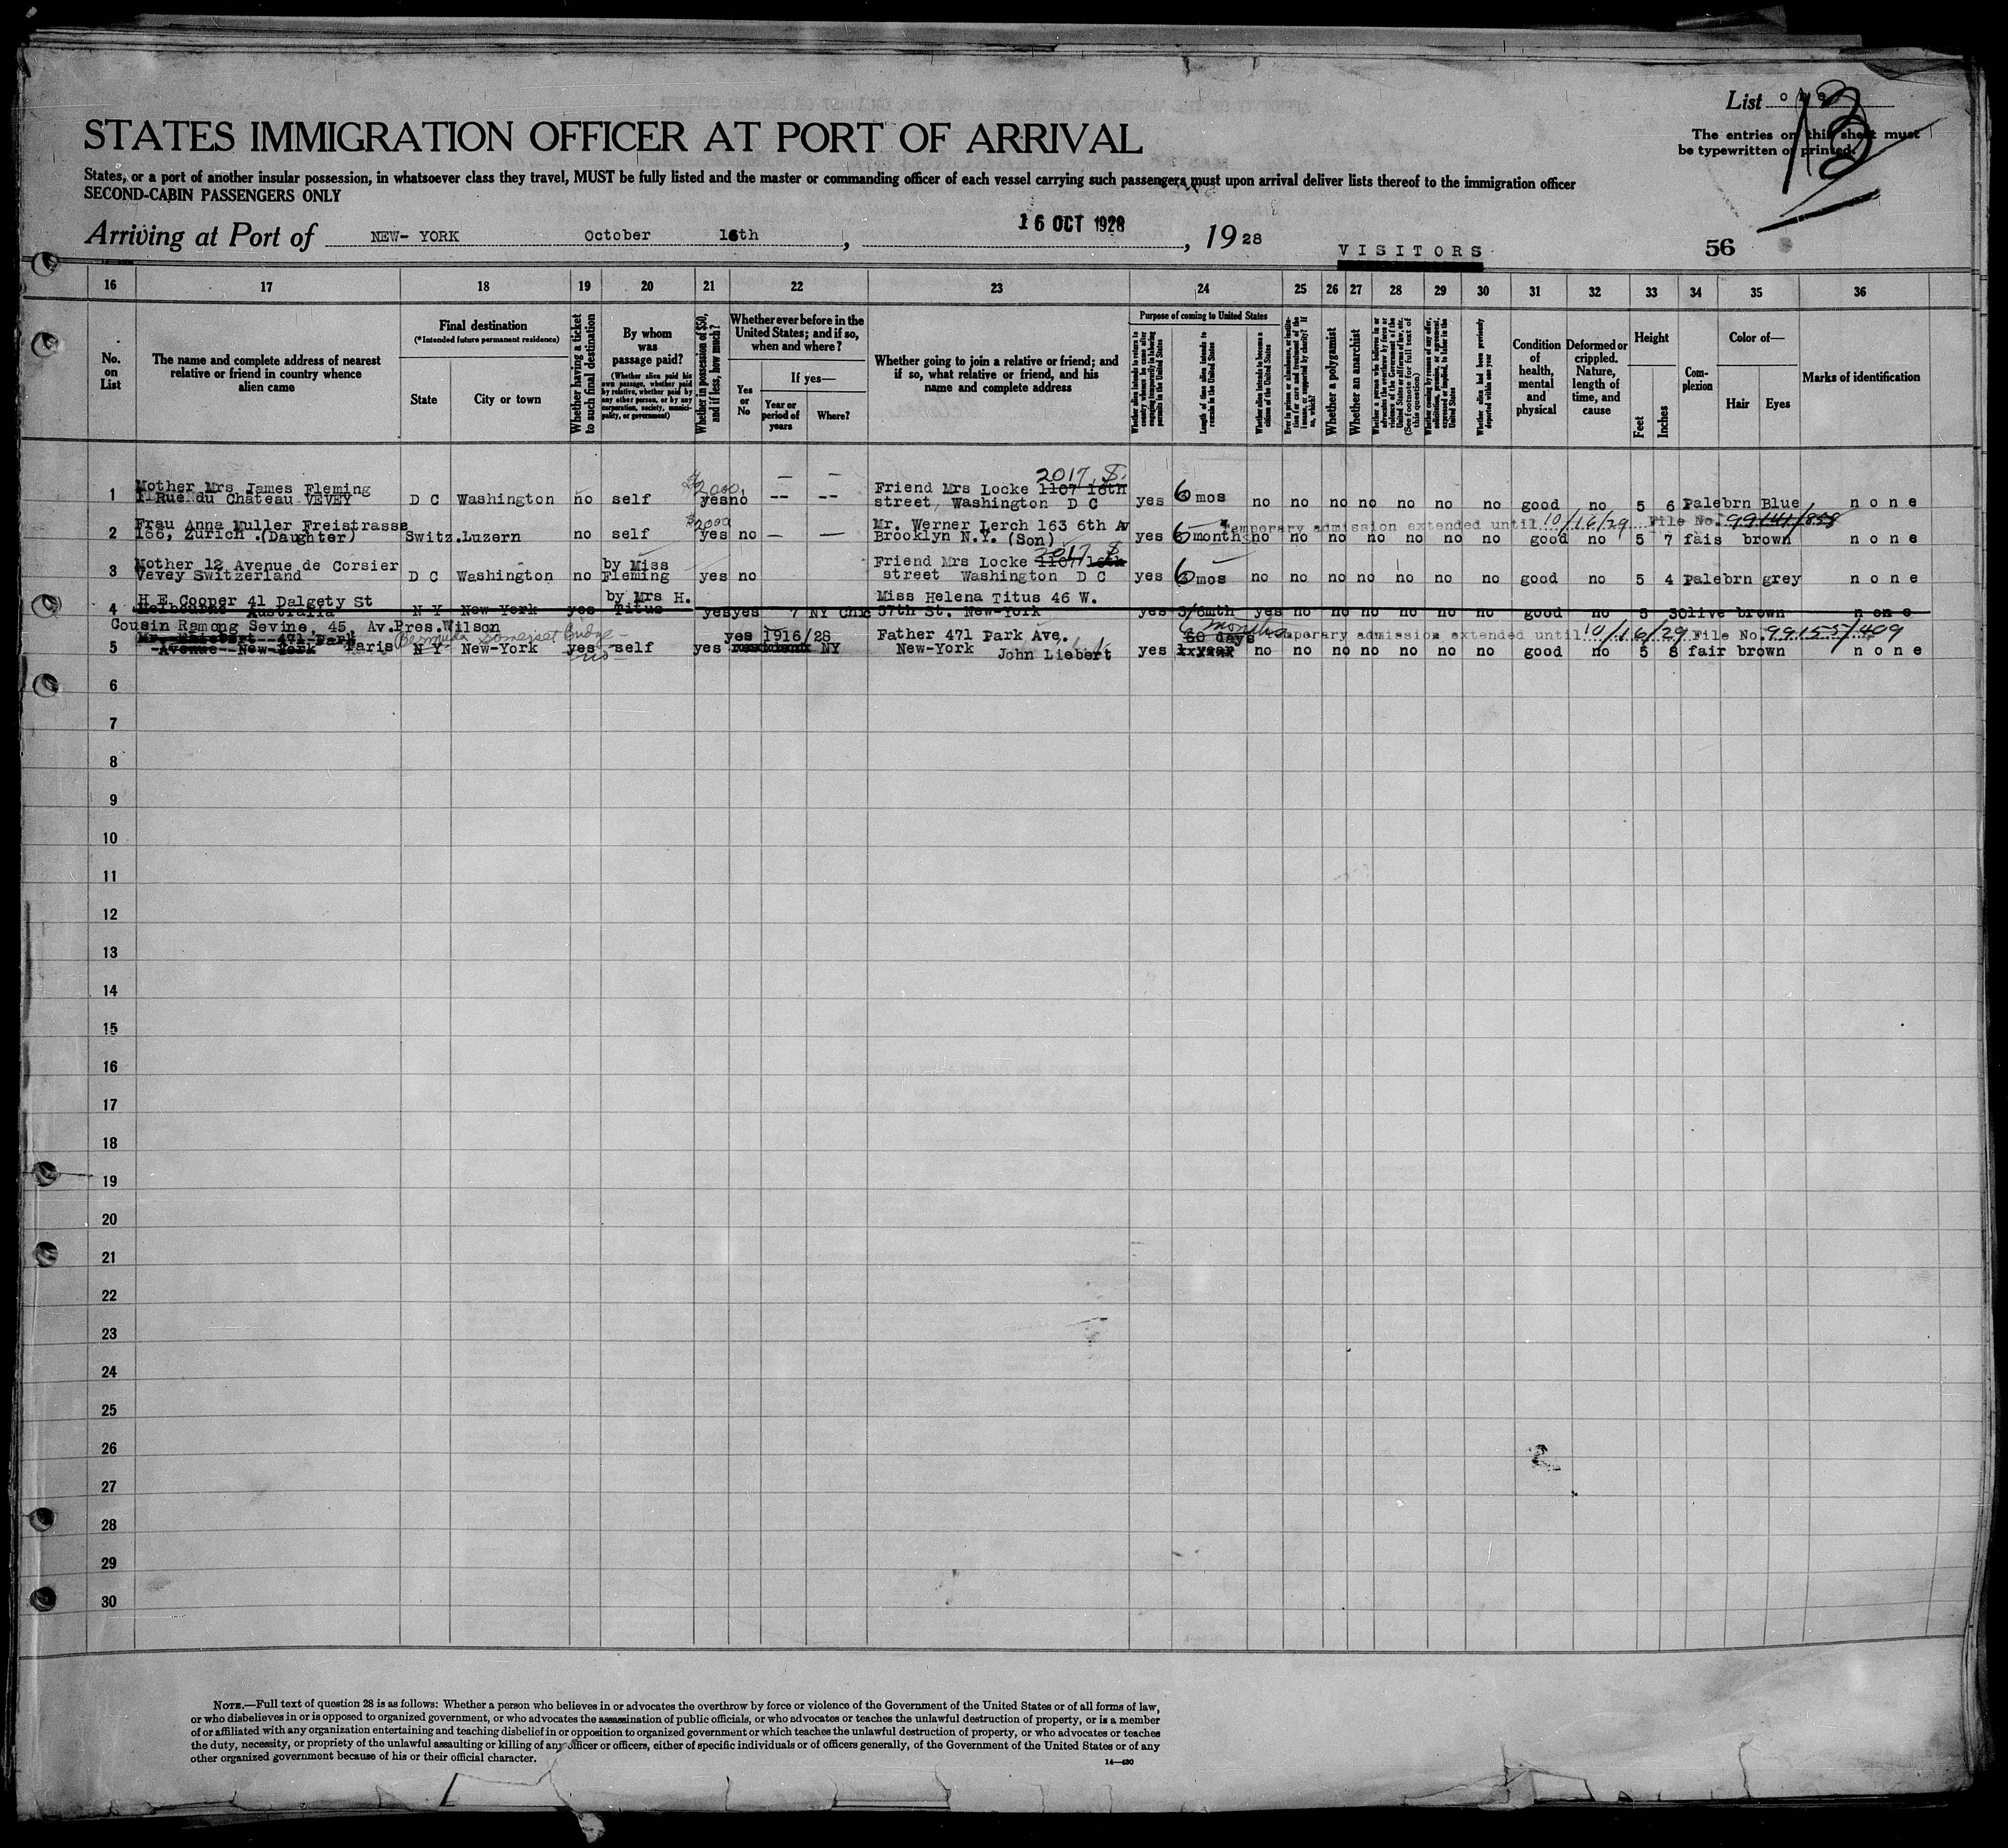 List one
13
The entries on this sheet must
be typewritten or printed.
STATES IMMIGRATION OFFICER AT PORT OF ARRIVAL
States, or a port of another insular possession, in whatsoever class they travel, MUST be fully listed and the master or commanding officer of each vessel carrying such passengers must upon arrival deliver lists thereof to the immigration officer
SECOND-CABIN PASSENGERS ONLY
Arriving at Port of NEW- YORK October 16th, 16 OCT 1928, 1928
VISITORS
56
16 17 18 19 20 21 22 23 24 25 26 27 28 29 30 31 32 33 34 35 36
No. on List
The name and complete address of nearest relative or friend in country whence alien came
Final destination
(*Intended future permanent residence)
State
City or town
Whether having a ticket to such final destination
By whom was passage paid?
(Whether alien paid his own passage, whether paid by relative, whether paid by any other person, or by any corporation, society, municipality, or government)
Whether in possession of $50, and if less, how much?
Whether ever before in the United States; and if so, when and where?
Yes or No
If yes—
Year or period of years
Where?
Whether going to join a relative or friend; and if so, what relative or friend, and his name and complete address
Purpose of coming to United States
Whether alien intends to return to country whence he came after engaging temporarily in laboring pursuits in the United States
Length of time alien intends to remain in the United States
Whether alien intends to become a citizen of the United States
Ever in prison or almshouse, or institution for care and treatment of the insane, or supported by charity? If so, which?
Whether a polygamist
Whether an anarchist
Whether a person who believes in or advocates the overthrow by force or violence of the Government of the United States or all forms of law, etc. (See footnote for full text of this question)
Whether coming by reason of any offer, solicitation, promise, or agreement, expressed or implied, to labor in the United States
Whether alien had been previously deported within one year
Condition of health, mental and physical
Deformed or crippled. Nature, length of time, and cause
Height
Feet
Inches
Complexion
Color of—
Hair
Eyes
Marks of identification
$2000 — — 2017, S.
Mother Mrs James Fleming Friend Mrs Locke 1107 16th
1 1 Rue du Chateau VEVEY D C Washington no self yes no -- -- street, Washington D C yes 6 mos no no no no no no no good no 5 6 Pale brn Blue none
Frau Anna Muller Freistrasse $2000 Mr. Werner Lerch 163 6th Av Temporary admission extended until 10/16/29 File No. 99141/858
2 166, Zurich .(Daughter) Switz. Luzern no self yes no — — Brooklyn N.Y. (Son) yes 6 months no no no no no no no good no 5 7 fais brown none
Mother 12 Avenue de Corsier by Miss Friend Mrs Locke 2017 S 1107 16th
3 Vevey Switzerland D C Washington no Fleming yes no street Washington D C yes 6 mos no no no no no no no good no 5 4 Pale brn grey none
H E Cooper 41 Dalgety St by Mrs H. Miss Helena Titus 46 W.
4 Melbourne Australia N Y New-York yes Titus yes yes 7 NY Chic 57th St. New-York yes 3/6mth yes no no no no no no good no 5 3 Olive brown none
Cousin Ramong Sevine, 45, Av.Pres.Wilson
471 Park Bermuda Somerset Bridge yes 1916/28 Father 471 Park Ave. 6 months 60 days Temporary admission extended until 10/16/29 File No. 99155/409
5 Avenue--New-York Paris N Y New-York yes no self yes NY New-York John Liebert yes 1 year no no no no no no no good no 5 8 fair brown none
6
7
8
9
10
11
12
13
14
15
16
17
18
19
20
21
22
23
24
25
26
27
28
29
30
NOTE.—Full text of question 28 is as follows: Whether a person who believes in or advocates the overthrow by force or violence of the Government of the United States or of all forms of law,
or who disbelieves in or is opposed to organized government, or who advocates the assassination of public officials, or who advocates or teaches the unlawful destruction of property, or is a member
of or affiliated with any organization entertaining and teaching disbelief in or opposition to organized government or which teaches the unlawful destruction of property, or who advocates or teaches
the duty, necessity, or propriety of the unlawful assaulting or killing of any officer or officers, either of specific individuals or of officers generally, of the Government of the United States or of any
other organized government because of his or their official character.
14—430